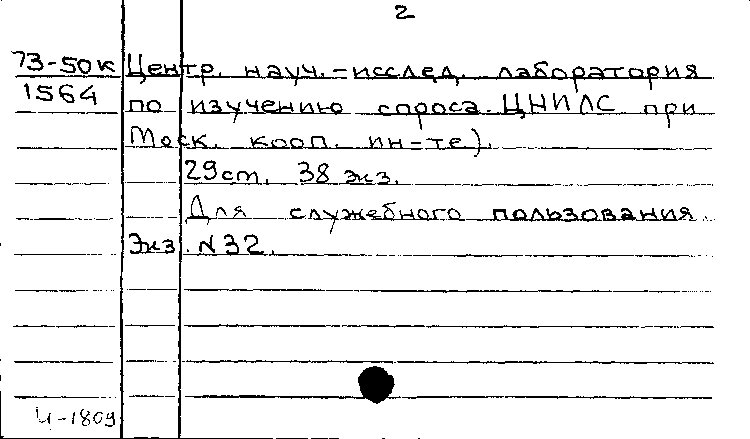 2
73-50к Центр. науч.-исслед. лаборатория
1564 по изучению спроса ЦНИЛС при
Моск. кооп. ин-те).
29 ст. 38 экз.
Для служебного пользования.
Экз. N 32.
И-1809